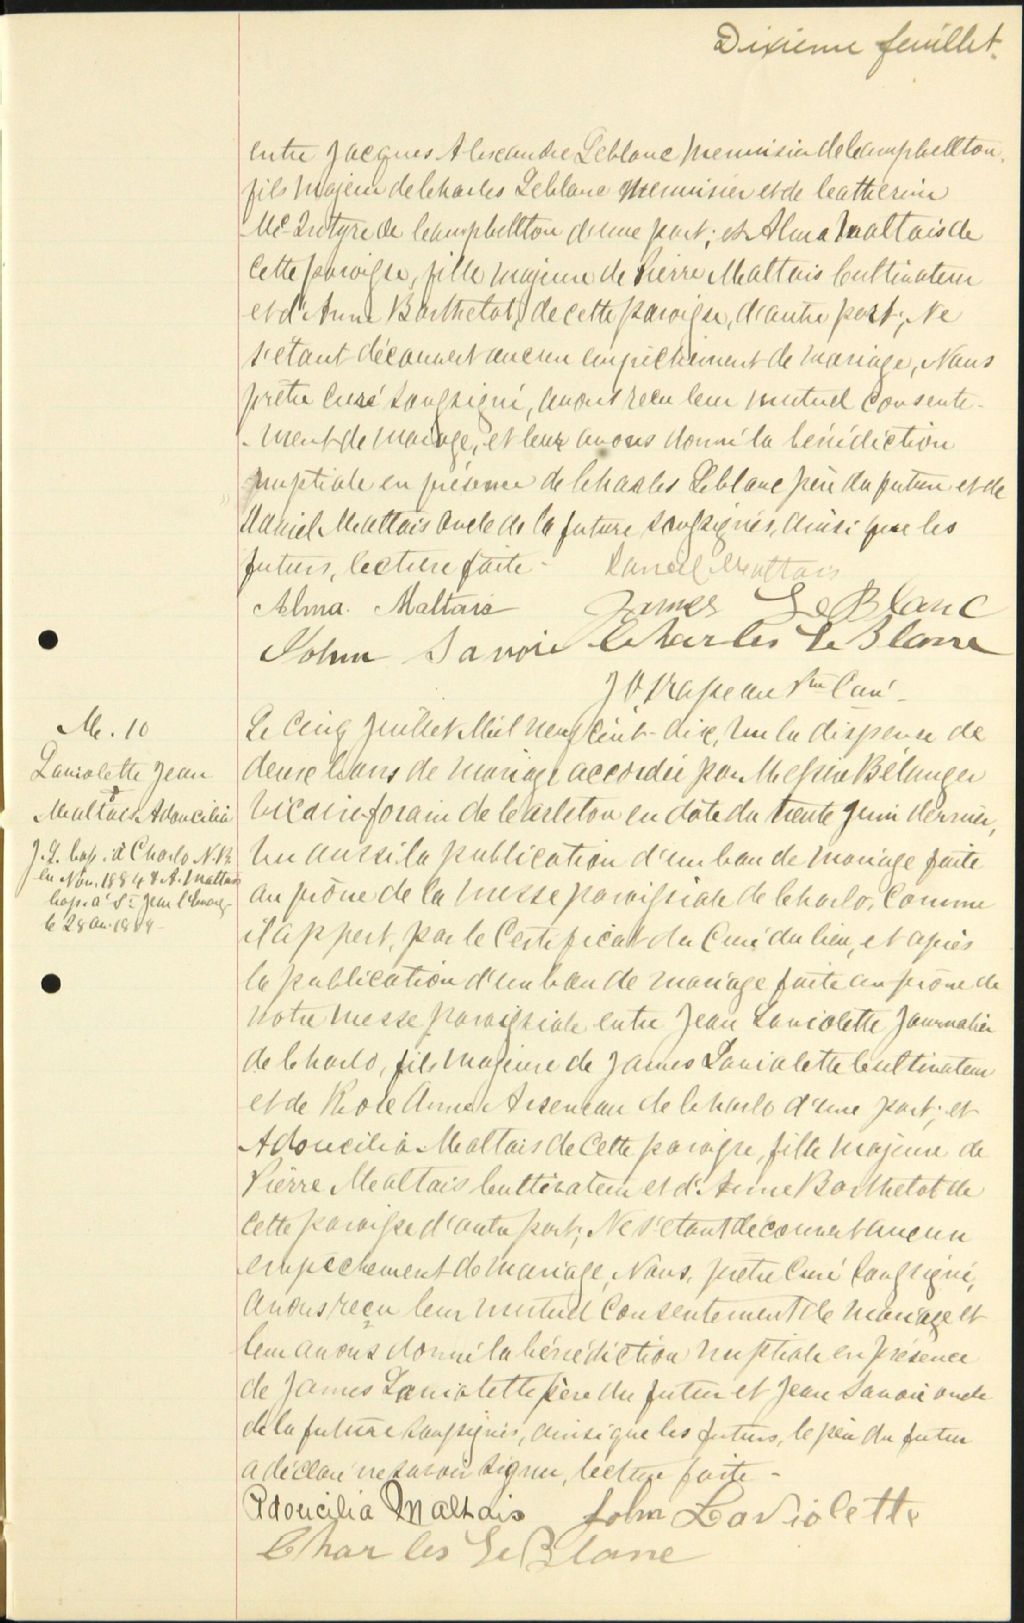 Dixième feuillet.
entre Jacques Alexandre Leblanc menuisier de Campbellton,
fils majeur de Charles Leblanc menuisier et de Catherine
McIntyre de Campbellton d'une part; et Alma Maltais de
cette paroisse, fille majeure de Pierre Maltais Cultivateur
et d'Anne Barthelot, de cette paroisse, d'autre part; Ne
s'étant découvert aucun empêchement de mariage, Nous
prêtre curé soussigné, avons reçu leur mutuel consente-
-ment de mariage, et leur avons donné la bénédiction
nuptiale en présence de Charles Leblanc père du futur et de
Daniel Maltais oncle de la future soussignés, ainsi que les
futurs, lecture faite - Daniel Maltais
Alma Maltais James LeBlanc
John Savoie Charles LeBlanc
J O Drapeau Ptre Curé -
M. 10
Laviolette Jean
&
Maltais Adoucilia
J. L. bap. à Charlo N.B.
en Nov. 1884 & A. Maltais
bap. à St Jean l'Evang.
le 28 1889 -
Le cinq Juillet Mil neuf cent-dix, vu la dispense de
deux bans de mariage accordée par Messire Bélanger
Vicaire forain de Carleton en date du trente Juin dernier,
Vu aussi la publication d'un ban de mariage faite
au prône de la messe paroissiale de Charlo, Comme
il appert, par le Certificat du Curé du lieu, et après
la publication d'un ban de mariage faite au prône de
notre messe paroissiale entre Jean Laviolette Journalier
de Charlo, fils majeur de James Laviolette Cultivateur
et de Rose Anne Arseneau de Charlo d'une part; et
Adoucilia Maltais de Cette paroisse, fille majeure de
Pierre Maltais Cultivateur et d'Anne Barthelot de
cette paroisse d'autre part; Ne s'étant découvert aucun
empêchement de mariage, Nous, prêtre Curé soussigné,
avons reçu leur mutuel Consentement de mariage et
leur avons donné la bénédiction nuptiale en présence
de James Laviolette père du futur et Jean Savoie oncle
de la future soussignés, ainsi que les futurs, le père du futur
a déclaré ne savoir signer, lecture faite -
Adoucilia Maltais John Laviolette
Charles LeBlanc